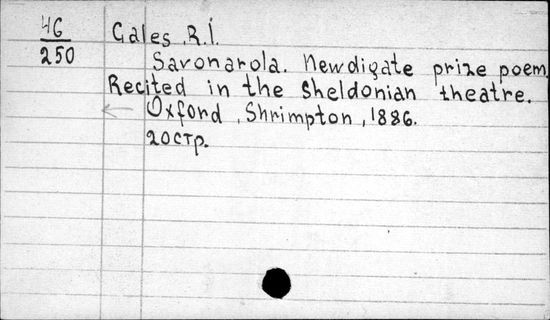 46 Gales R.I.
250 Savonarola. Newdigate prize poem
Recited in the Sheldonian theatre.
Oxford, Shrimpton, 1886.
20стр.